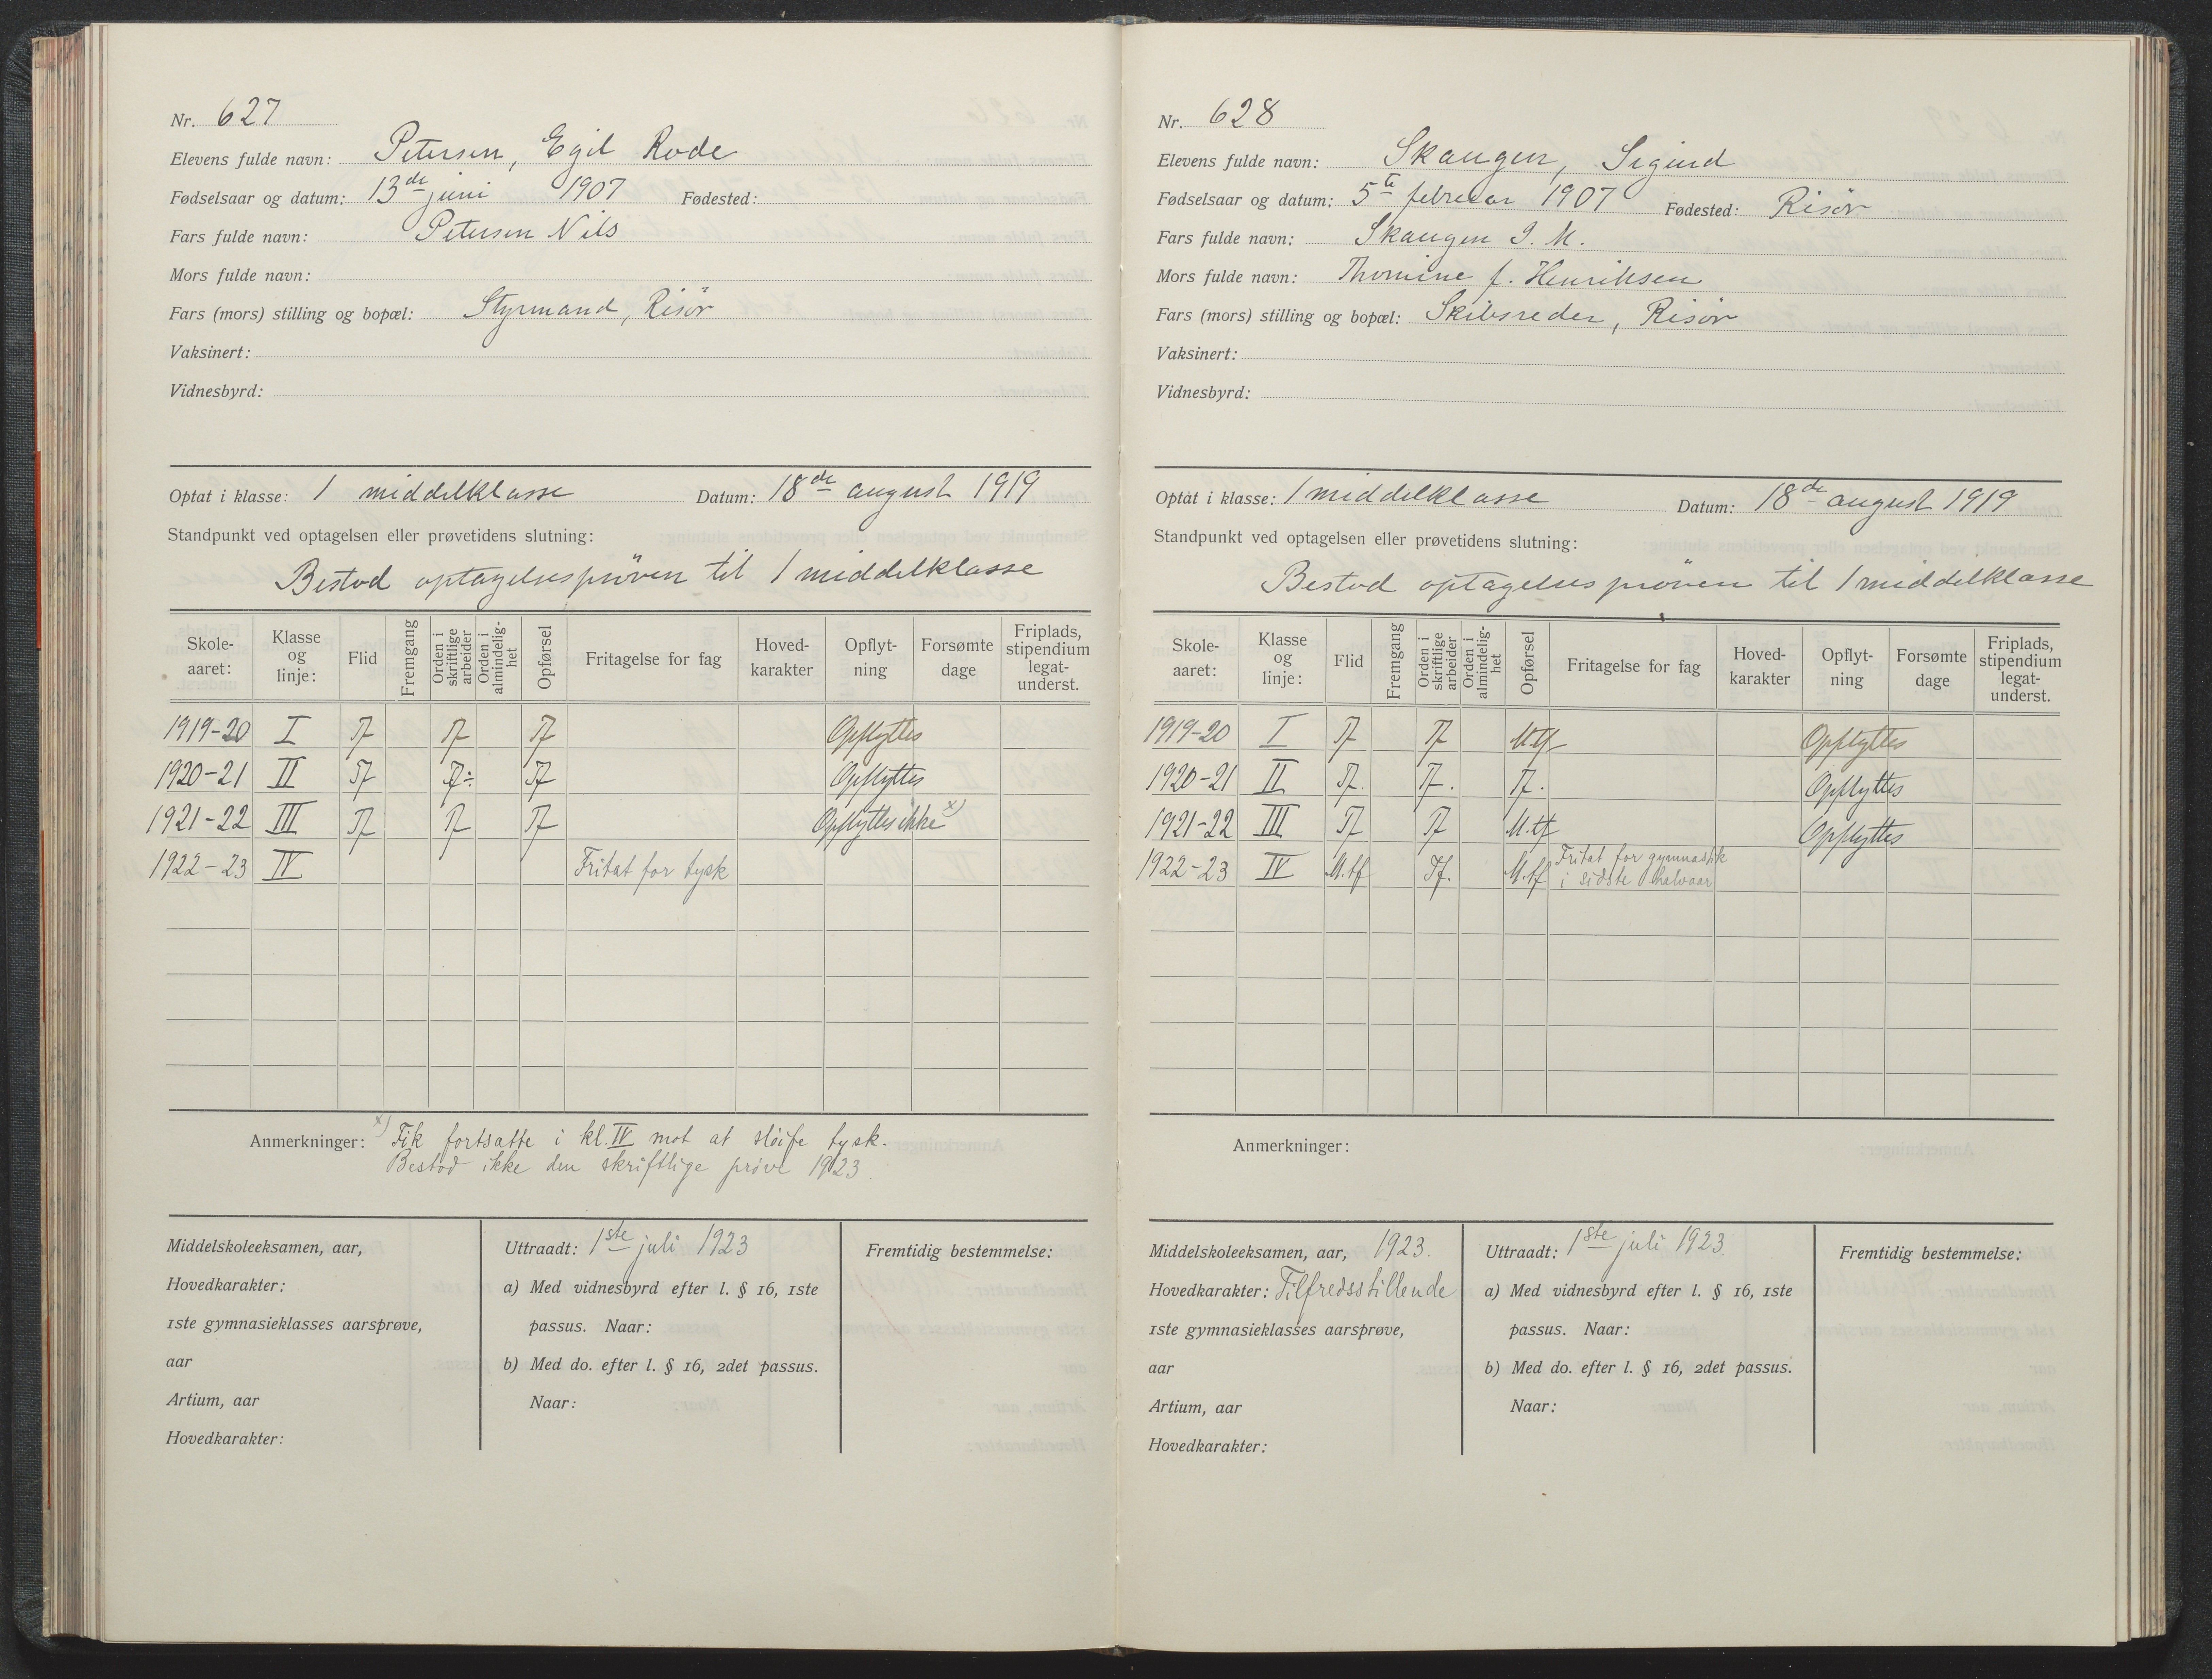 Nr. 627
Elevens fulde navn: Petersen, Egil Rode
Fødselsaar og datum: 13de juni 1907 Fødested:
Fars fulde navn: Petersen Nils
Mors fulde navn:
Fars (mors) stilling og bopæl: Styrmand, Risør
Vaksinert:
Vidnesbyrd:
Optat i klasse: 1 middelklasse Datum: 18de august 1919
Standpunkt ved optagelsen eller prøvetidens slutning:
Bestod optagelsesprøven til 1 middelklasse
Skole-aaret: Klasse og linje: Flid Fremgang Orden i skriftlige arbeider Orden i almindelig-het Opførsel Fritagelse for fag Hoved-karakter Opflyt-ning Forsømte dage Friplads, stipendium legat-underst.
1919-20 I Tf Tf Tf Opflyttes
1920-21 II Tf Tf÷ Tf Opflyttes
1921-22 III Tf Tf Tf Opflyttes ikke x)
1922-23 IV Fritat for tysk
Anmerkninger: x) Fik fortsatte i kl. IV mot at sløife tysk.
Bestod ikke den skriftlige prøve 1923.
Middelskoleeksamen, aar,
Hovedkarakter:
1ste gymnasieklasses aarsprøve,
aar
Artium, aar
Hovedkarakter:
Uttraadt: 1ste juli 1923
a) Med vidnesbyrd efter l. § 16, 1ste
passus. Naar:
b) Med do. efter l. § 16, 2det passus.
Naar:
Fremtidig bestemmelse:
Nr. 628
Elevens fulde navn: Skaugen, Sigurd
Fødselsaar og datum: 5te februar 1907 Fødested: Risør
Fars fulde navn: Skaugen I. M.
Mors fulde navn: Thomine f. Henriksen
Fars (mors) stilling og bopæl: Skibsreder, Risør
Vaksinert:
Vidnesbyrd:
Optat i klasse: 1 middelklasse Datum: 18de august 1919
Standpunkt ved optagelsen eller prøvetidens slutning:
Bestod optagelsesprøven til 1 middelklasse
Skole-aaret: Klasse og linje: Flid Fremgang Orden i skriftlige arbeider Orden i almindelig-het Opførsel Fritagelse for fag Hoved-karakter Opflyt-ning Forsømte dage Friplads, stipendium legat-underst.
1919-20 I Tf Tf M.tf Opflyttes
1920-21 II Tf. Tf. Tf. Opflyttes
1921-22 III Tf Tf M.tf Opflyttes
1922-23 IV M.tf Tf. M.tf Fritat for gymnastik
i sidste halvaar
Anmerkninger:
Middelskoleeksamen, aar, 1923.
Hovedkarakter: Tilfredsstillende
1ste gymnasieklasses aarsprøve,
aar
Artium, aar
Hovedkarakter:
Uttraadt: 1ste juli 1923.
a) Med vidnesbyrd efter l. § 16, 1ste
passus. Naar:
b) Med do. efter l. § 16, 2det passus.
Naar:
Fremtidig bestemmelse: